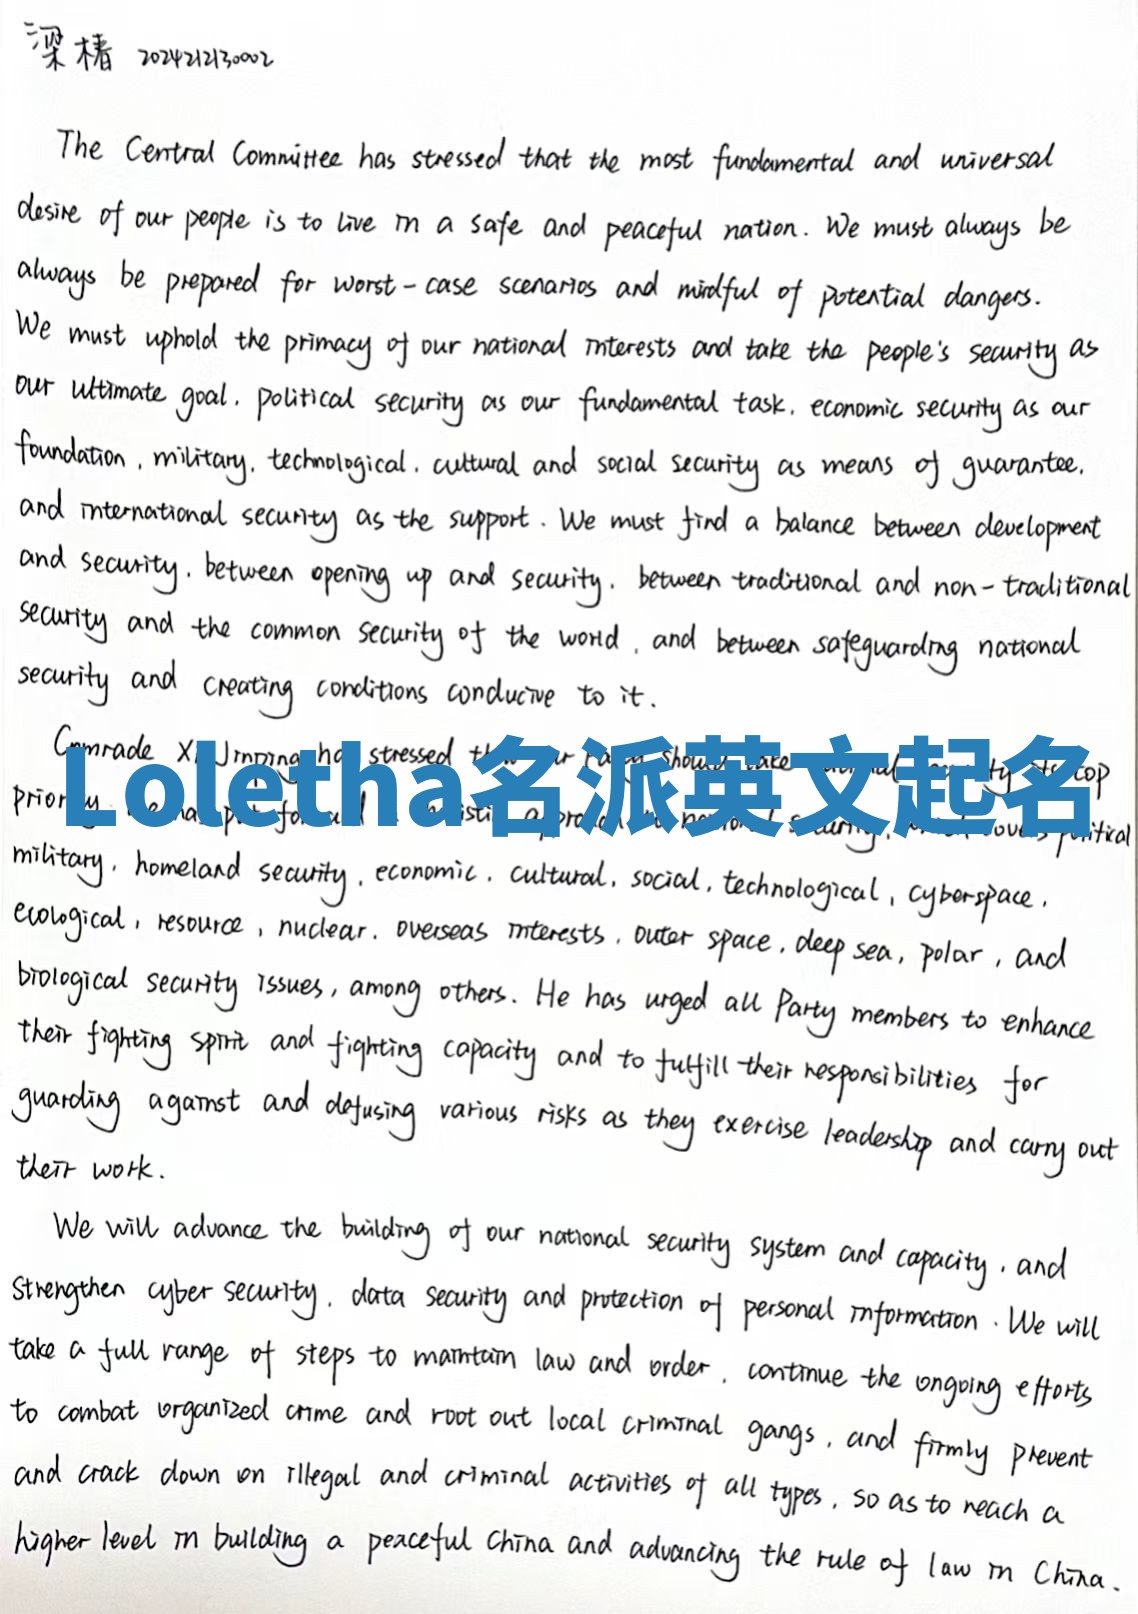 梁椿 2024212130002
The Central Committee has stressed that the most fundamental and universal
desire of our people is to live in a safe and peaceful nation. We must always be
always be prepared for worst-case scenarios and mindful of potential dangers.
We must uphold the primacy of our national interests and take the people's security as
our ultimate goal, political security as our fundamental task, economic security as our
foundation, military, technological, cultural and social security as means of guarantee,
and international security as the support. We must find a balance between development
and security, between opening up and security, between traditional and non-traditional
security and the common security of the world, and between safeguarding national
security and creating conditions conducive to it.
Comrade Xi Jinping has stressed
Loletha名派英文起名
top
political
military, homeland security, economic, cultural, social, technological, cyberspace,
ecological, resource, nuclear, overseas interests, outer space, deep sea, polar, and
biological security issues, among others. He has urged all Party members to enhance
their fighting spirit and fighting capacity and to fulfill their responsibilities for
guarding against and defusing various risks as they exercise leadership and carry out
their work.
We will advance the building of our national security system and capacity, and
strengthen cyber security, data security and protection of personal information. We will
take a full range of steps to maintain law and order, continue the ongoing efforts
to combat organized crime and root out local criminal gangs, and firmly prevent
and crack down on illegal and criminal activities of all types, so as to reach a
higher level in building a peaceful China and advancing the rule of law in China.